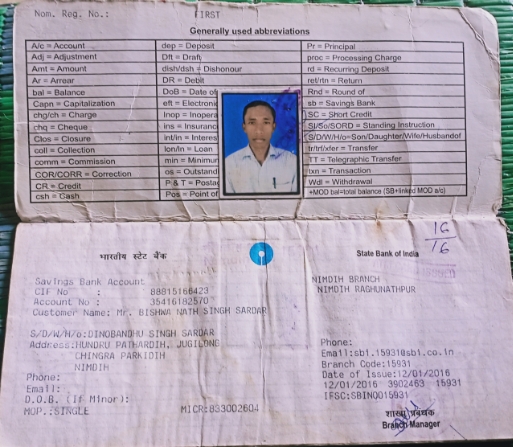 Nom. Reg. No.: FIRST
Generally used abbreviations
A/c = Account dep = Deposit Pr = Principal
Adj = Adjustment Dft = Draft proc = Processing Charge
Amt = Amount dish/dsh = Dishonour rd = Recurring Deposit
Ar = Arrear DR = Debit ret/rtn = Return
bal = Balance DoB = Date of Rnd = Round of
Capn = Capitalization eft = Electroni sb = Savings Bank
chg/ch = Charge Inop = Inopera SC = Short Credit
chq = Cheque ins = Insuranc SI/So/SORD = Standing Instruction
Clos = Closure int/in = Interes S/D/W/H/o=Son/Daughter/Wife/Husbandof
coll = Collection lon/ln = Loan tr/trf/xfer = Transfer
comm = Commission min = Minimum TT = Telegraphic Transfer
COR/CORR = Correction os = Outstand txn = Transaction
CR = Credit P & T = Posta Wdl = Withdrawal
csh = Cash Pos = Point of +MOD bal=total balance (SB+linked MOD a/c)
16/16
भारतीय स्टेट बैंक State Bank of India
NIMDIH BRANCH
NIMDIH RAGHUNATHPUR
Savings Bank Account
CIF No : 88815166423
Account No : 35416182570
Customer Name: Mr. BISHWA NATH SINGH SARDAR
S/D/W/H/o:DINOBANDHU SINGH SARDAR
Address:HUNDRU PATHARDIH, JUGILONG
CHINGRA PARKIDIH
NIMDIH
Phone:
Email:
D.O.B. (If Minor):
MOP.:SINGLE MICR:833002604
Phone:
Email:sbi.15931@sbi.co.in
Branch Code:15931
Date of Issue:12/01/2016
12/01/2016 3902463 15931
IFSC:SBIN0015931
शाखा प्रबंधक
Branch Manager